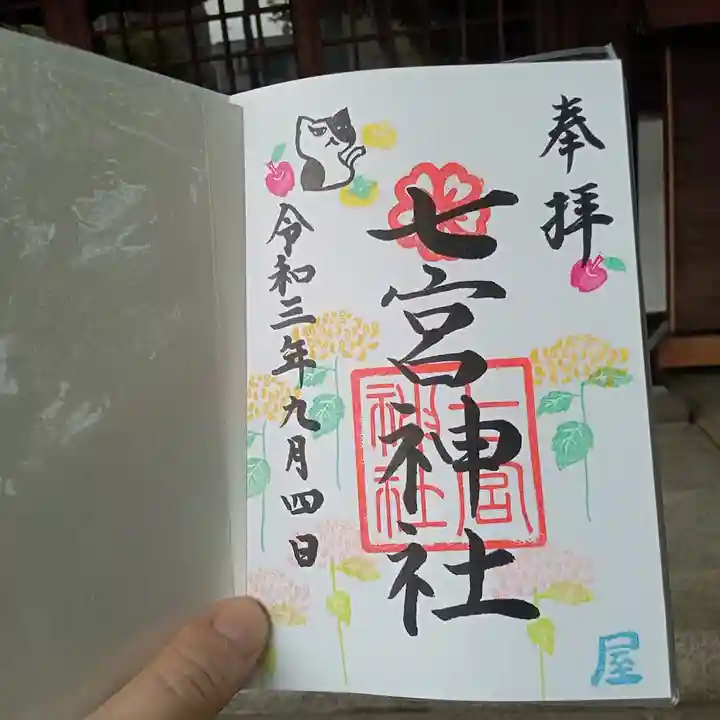 奉拝
七宮神社
七宮
神社
令和三年九月四日
屋